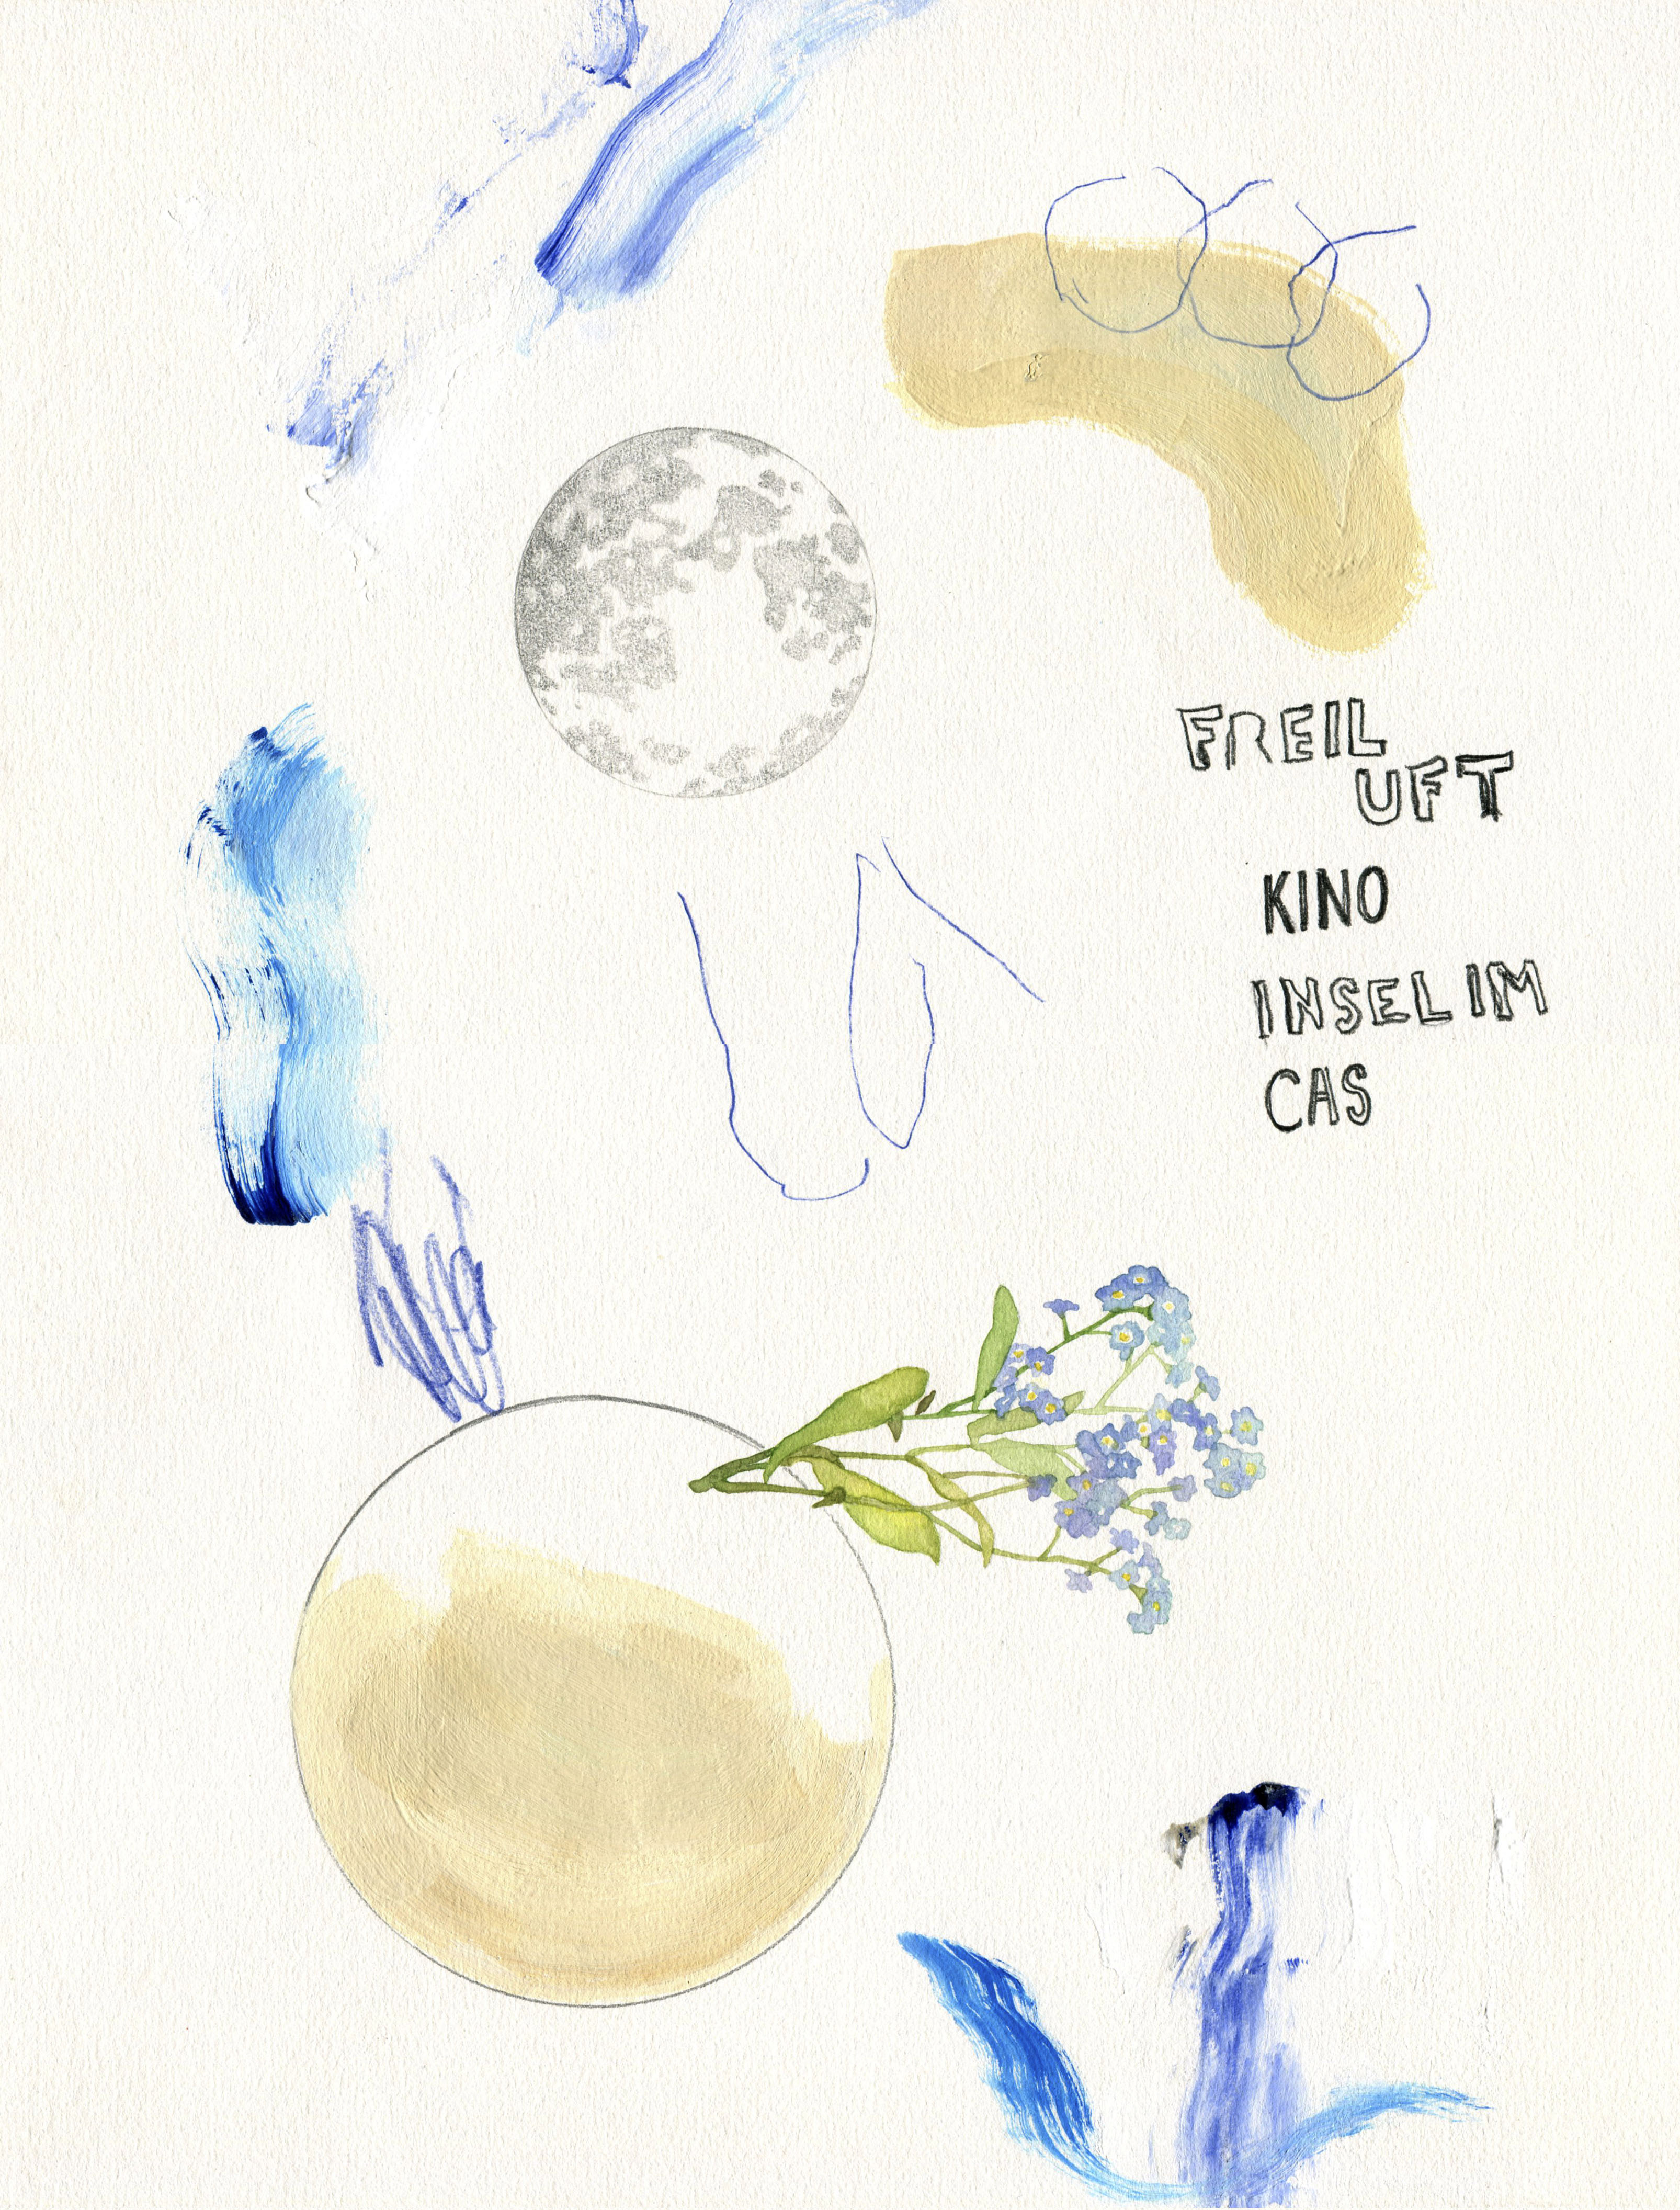 FREIL
UFT
KINO
INSEL IM
CAS